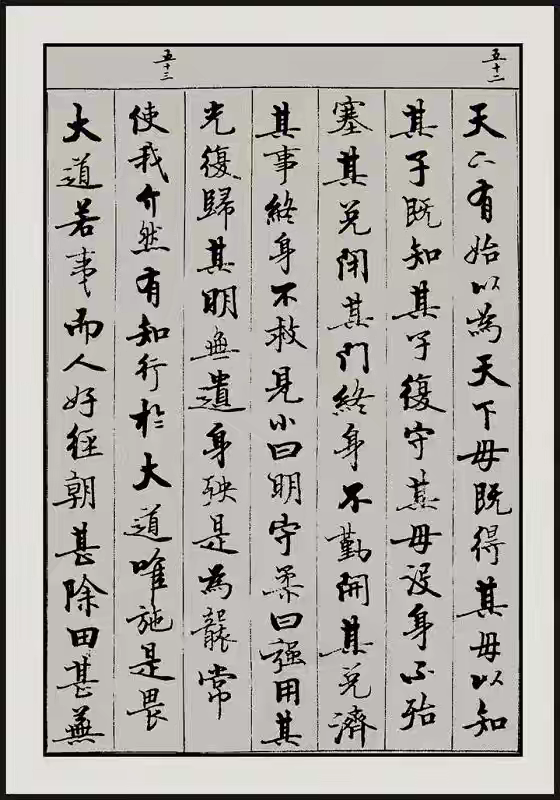 五十二
天下有始以為天下母既得其母以知
其子既知其子復守其母没身不殆
塞其兑閉其門終身不勤開其兑濟
其事終身不救見小曰明守柔曰強用其
光復歸其明無遺身殃是為襲常
五十三
使我介然有知行於大道唯施是畏
大道若夷而人好徑朝甚除田甚蕪